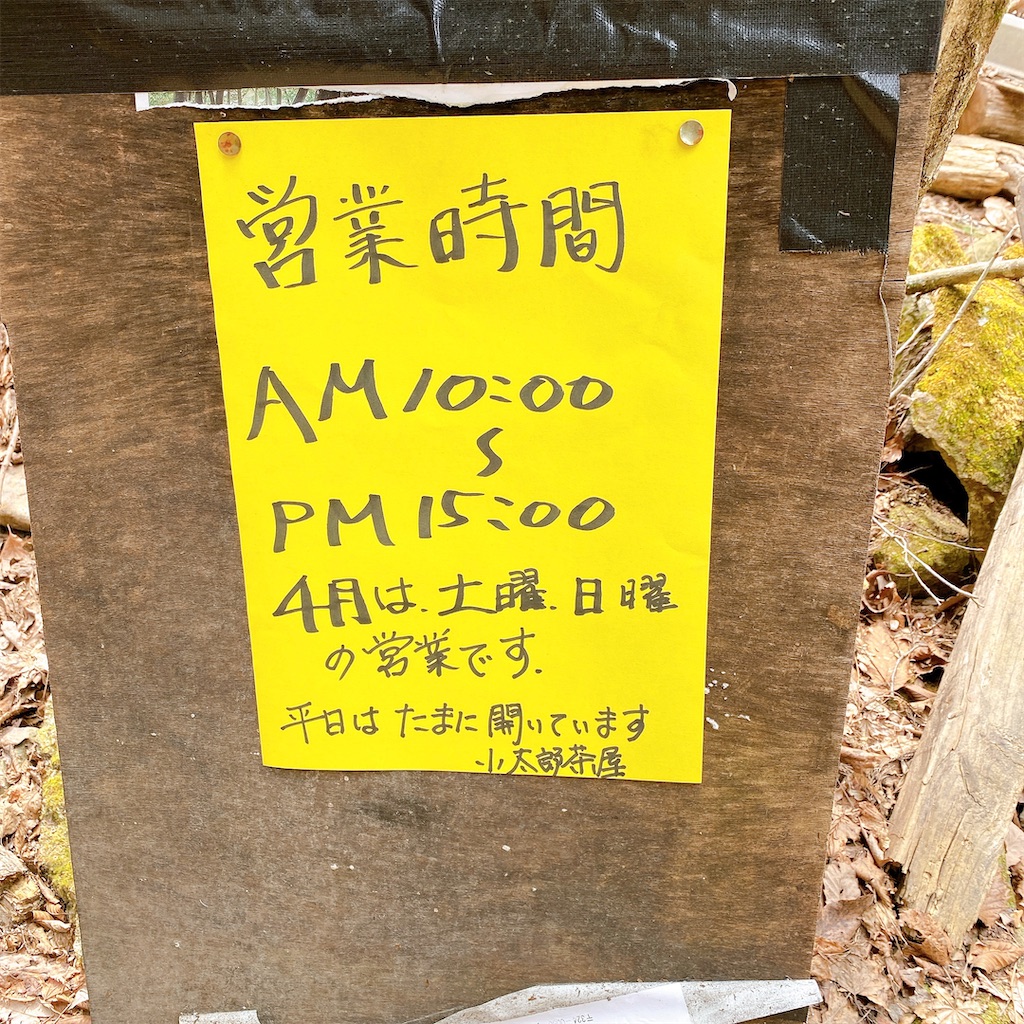 営業時間
AM10:00
〜
PM15:00
4月は.土曜.日曜
の営業です.
平日はたまに開いています
小太郎茶屋